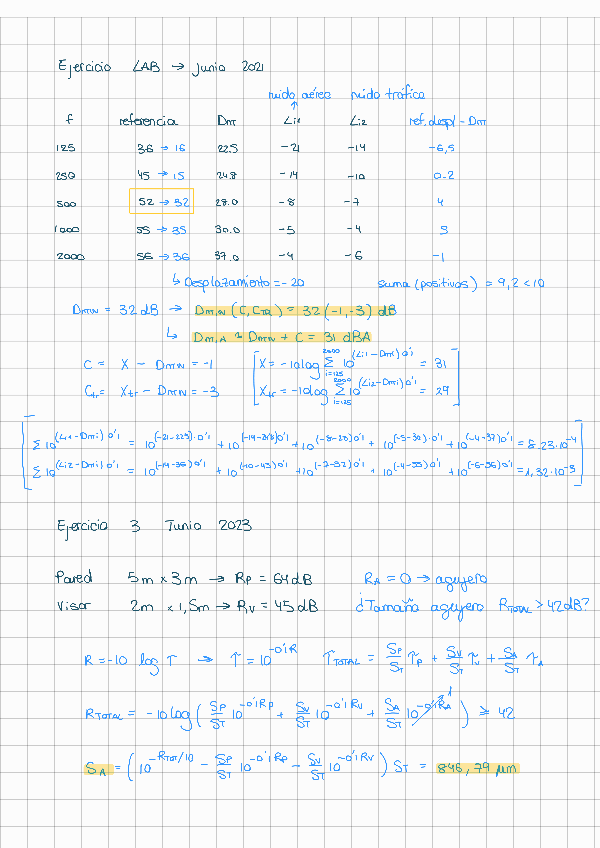 Ejercicio LAB → junio 2021
ruido aéreo ruido tráfico
f referencia DnT Li1 Li2 ref.despl - DnT
125 36 → 16 22.5 -21 -14 -6,5
250 45 → 15 24.8 -14 -10 0.2
500 52 → 32 28.0 -8 -7 4
1000 55 → 35 30.0 -5 -4 5
2000 56 → 36 37.0 -4 -6 -1
↳ Desplazamiento = -20 suma (positivos) = 9,2 < 10
DnT,w = 32 dB → DnT,w (C, Ctr) = 32 (-1, -3) dB
↳ DnT,A ≈ DnT,w + C = 31 dBA
C = X - DnT,w = -1 [X = -10log Σ(i=125, 2000) 10^(Li1-DnTi)0'1 = 31
Ctr = Xtr - DnT,w = -3 Xtr = -10log Σ(i=125, 2000) 10^(Li2-DnTi)0'1 = 29]
[Σ10^(Li1-DnTi)0'1 = 10^(-21-22,5)·0'1 + 10^(-14-24,8)0'1 + 10^(-8-28)0'1 + 10^(-5-30)·0'1 + 10^(-4-37)0'1 = 8.23·10^-4
Σ10^(Li2-DnTi)0'1 = 10^(-14-36)0'1 + 10^(-10-45)0'1 + 10^(-7-52)0'1 + 10^(-4-55)0'1 + 10^(-6-56)0'1 = 1,32·10^-3]
Ejercicio 3 Junio 2023
Pared 5m x 3m → Rp = 64dB RA = 0 → agujero
Visor 2m x 1,5m → Rv = 45dB ¿Tamaña agujero RTOTAL > 42dB?
R = -10 log τ → τ = 10^-0'1R τTOTAL = Sp/ST τp + Sv/ST τv + SA/ST τA
RTOTAL = -10log (Sp/ST 10^-0'1Rp + Sv/ST 10^-0'1Rv + SA/ST 10^-0'1RA 1) ≥ 42
SA = (10^-RTOT/10 - Sp/ST 10^-0'1Rp - Sv/ST 10^-0'1Rv) ST = 846,79 μm